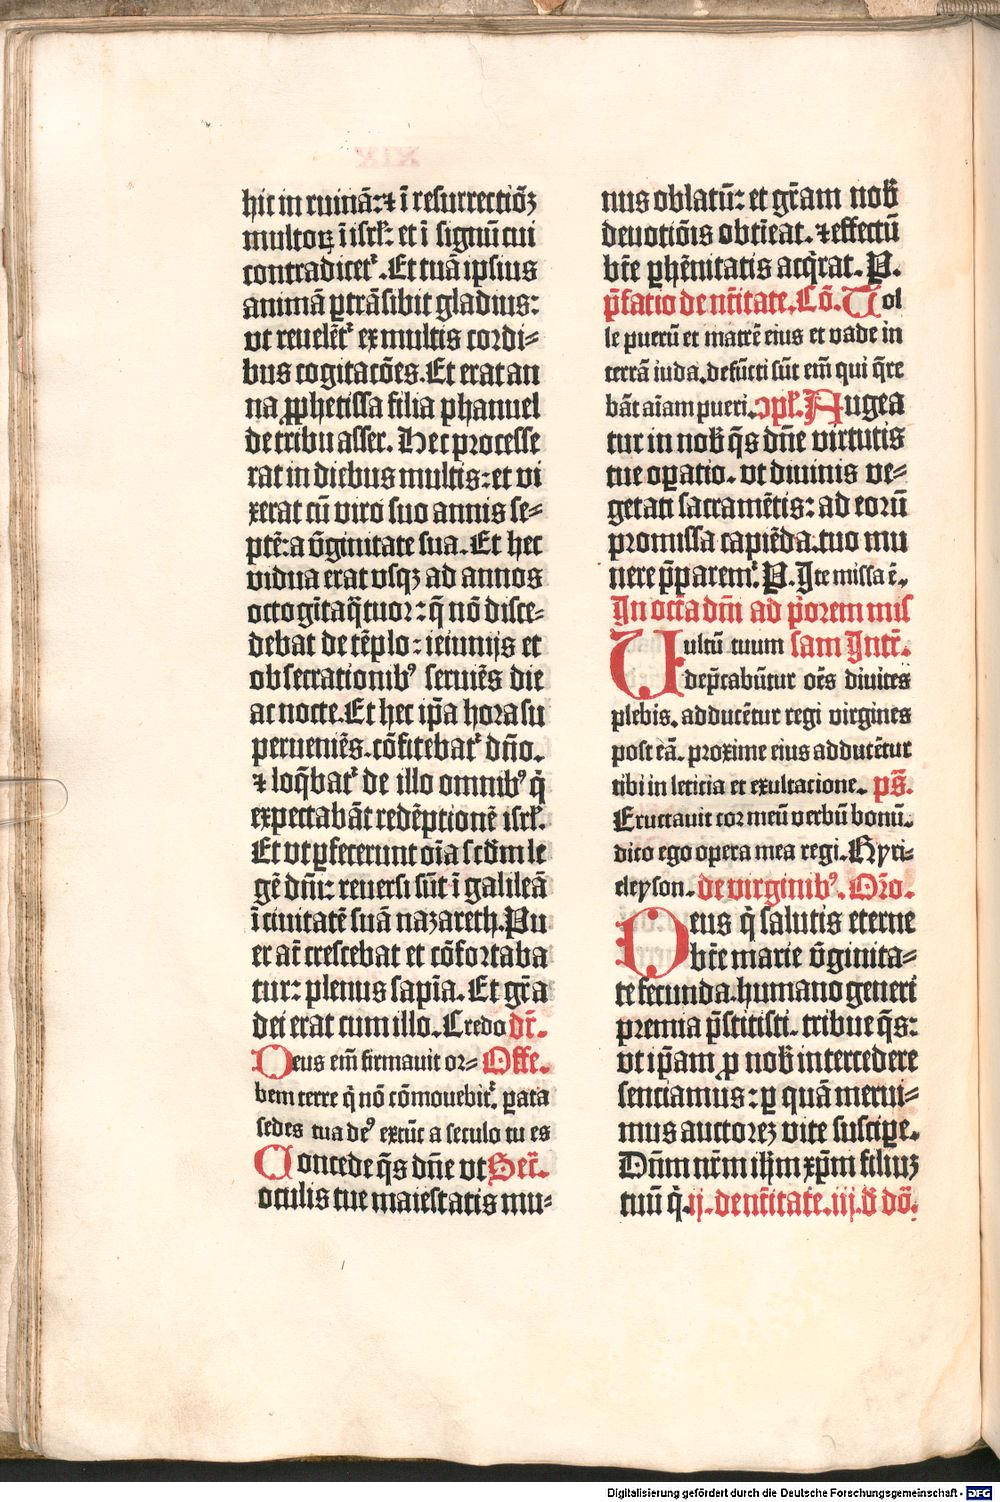 hic in ruinā: ⁊ ī resurrectiōꝫ
multoꝝ ī isrl̄: et ī signū cui
contradicet᷑. Et tuā ipsius
animā ꝑtrāsibit gladius:
vt reuelēt᷑ ex multis cordi⸗
bus cogitacōes. Et erat an
na ꝓphetissa filia phanuel
de tribu asser. Hec processe
rat in diebus multis: et vi
xerat cū viro suo annis se⸗
ptē: a v̄ginitate sua. Et hec
vidua erat vsqꝫ ad annos
octogīta q̄tuor: q̄ nō disce⸗
debat de tēplo: ieiunijs et
obsecrationibꝰ seruiēs die
ac nocte. Et hec ip̄a hora su
perueniēs. cōfitebat᷑ dn̄o.
⁊ loq̄bat᷑ de illo omnibꝰ q̄
expectabāt redēptionē isrl̄.
Et vt ꝑfecerunt oīa scd̄m le
gē dn̄i: reuersi sūt ī galileā
ī ciuitatē suā nazareth. Pu
er aūt crescebat et cōfortaba
tur: plenus sapīa. Et gr̄a
dei erat cum illo. Credo dr̄.
Deus em̄ firmauit or⸗ Offe.
bem terre q̄ nō cōmouebit᷑. ꝑata
sedes tua deꝰ extūc a seculo tu es
Concede q̄s dn̄e vt Secr̄.
oculis tue maiestatis mu⸗
nus oblatū: et gr̄am nob̄
deuotiōis obtīeat. ⁊ effectū
bt̄e ꝑhēnitatis acq̄rat. P.
p̄fatio de nt̄itate. Cō. Tol
le puerū et matrē eius et vade in
terrā iuda. defūcti sūt em̄ qui q̄re
bāt aīam pueri. ↄpl̄. Augea
tur in nob̄ q̄s dn̄e virtutis
tue oꝑatio. vt diuinis ve⸗
getati sacramētis: ad eorū
promissa capiēda. tuo mu
nere p̄paremᷣ. P. Ite missa ē.
In octa dn̄i ad p̄orem mis
Vultū tuum sam Intr̄.
dep̄cabūtur oēs diuites
plebis. adducētur regi virgines
post eā. proxime eius adducētur
tibi in leticia et exultacione. ps̄.
Eructauit cor meū verbū bonū.
dico ego opera mea regi. Kyri⸗
eleyson. de virginibꝰ. Oro.
Deus q̄ salutis eterne
bt̄e marie v̄ginita⸗
te fecunda. humano generi
premia p̄stitisti. tribue q̄s:
vt ip̄am ꝓ nob̄ intercedere
senciamus: ꝑ quā merui⸗
mus auctoreꝫ vite suscipe.
Dn̄m nr̄m ih̄m xp̄m filiuꝫ
tuū q̄. ij. de nt̄itate. iij. d̄ dō.
Digitalisierung gefördert durch die Deutsche Forschungsgemeinschaft - DFG